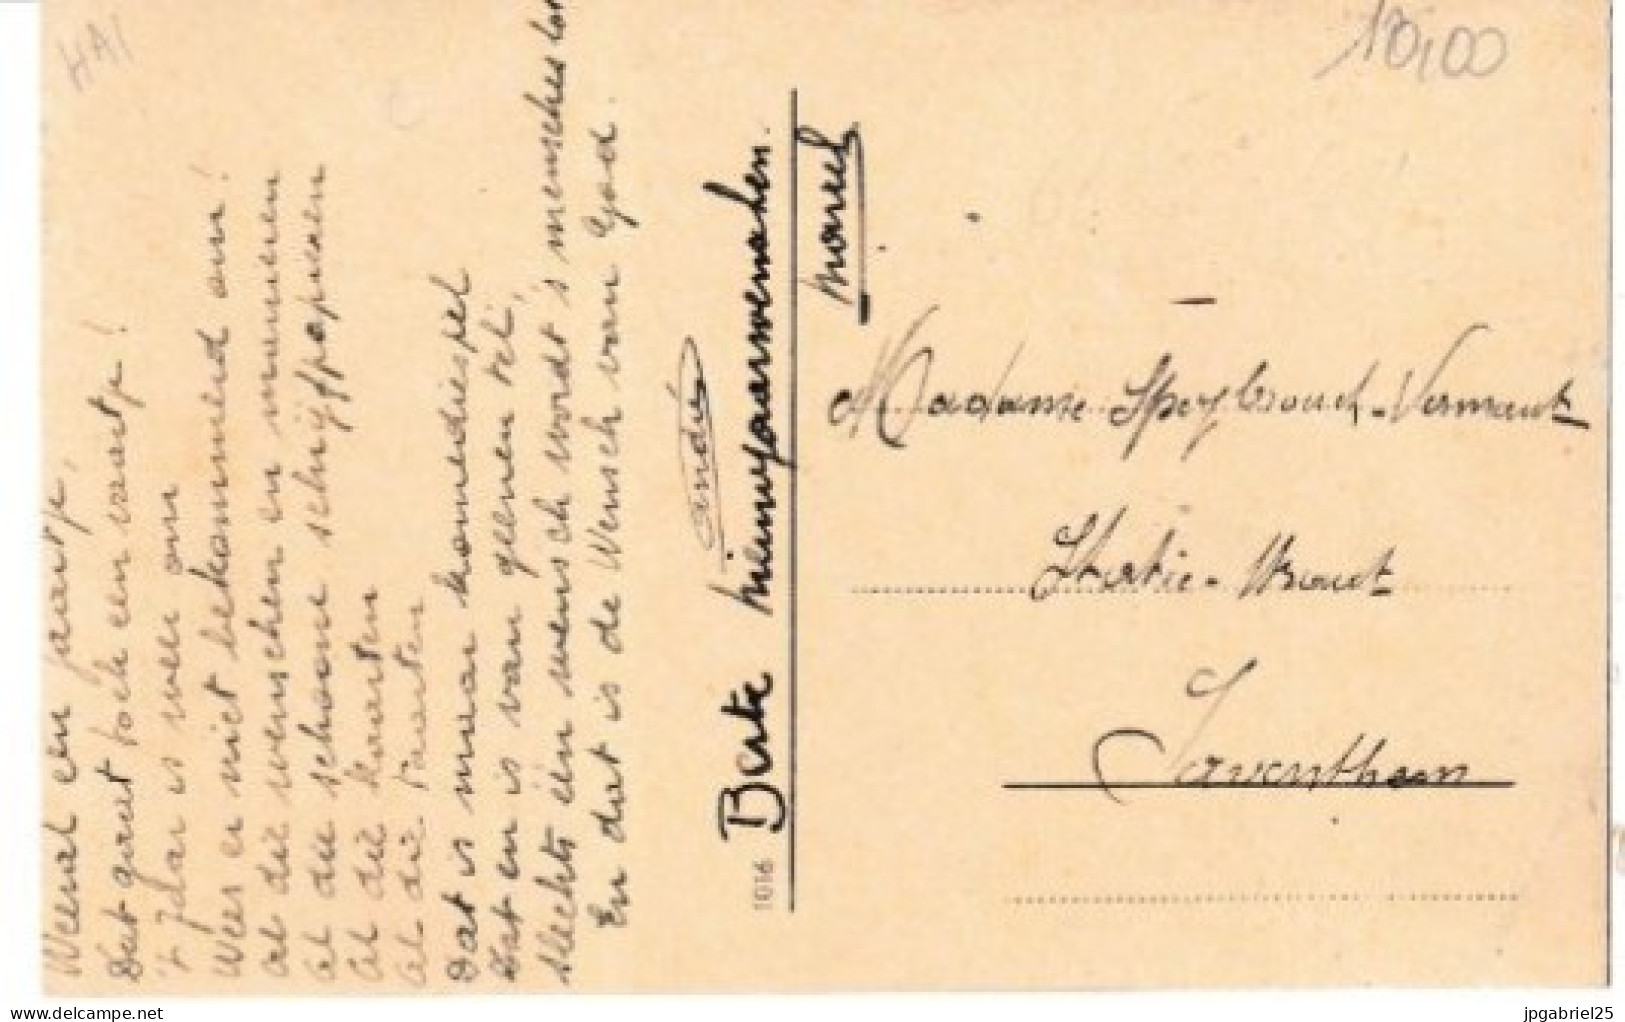 HA1
10,00
Weeral een jaartje,
Dat gaat toch een vaartje!
't Jaar is weer om
Weer er niet bekommerd om!
Al die wenschen en mumeen
Al die schoone schrijfpapieren
Al die kaarten
Al die taarten
Dat is maar komediespel
Dat en is van geenen tel,
Slechts één wensch wordt 's menschen lot
En dat is de Wensch van God.
André
Beste nieuwjaarwenschen.
Marcel
Madame Speybrouck-Vermaut
Statie-Straat
Saventhem
1016
delcampe.net
jpgabriel25